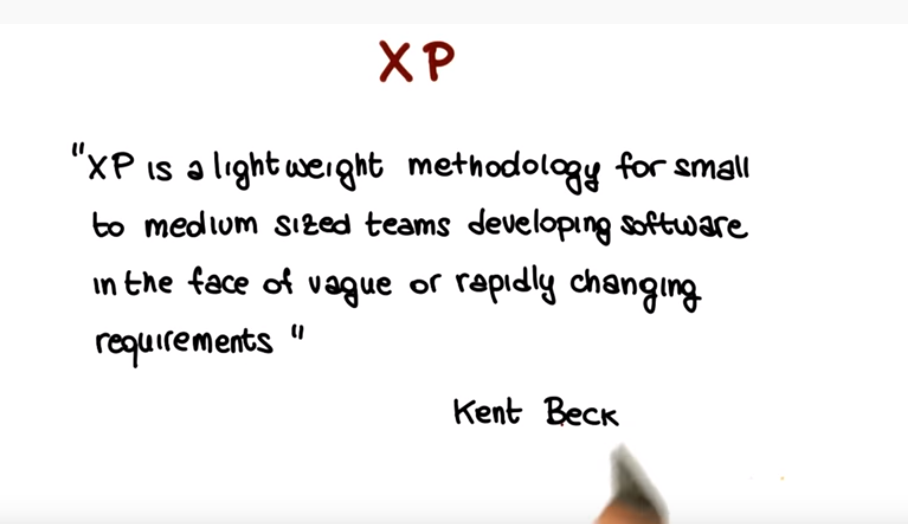 XP
"XP is a lightweight methodology for small
to medium sized teams developing software
in the face of vague or rapidly changing
requirements "
Kent Beck